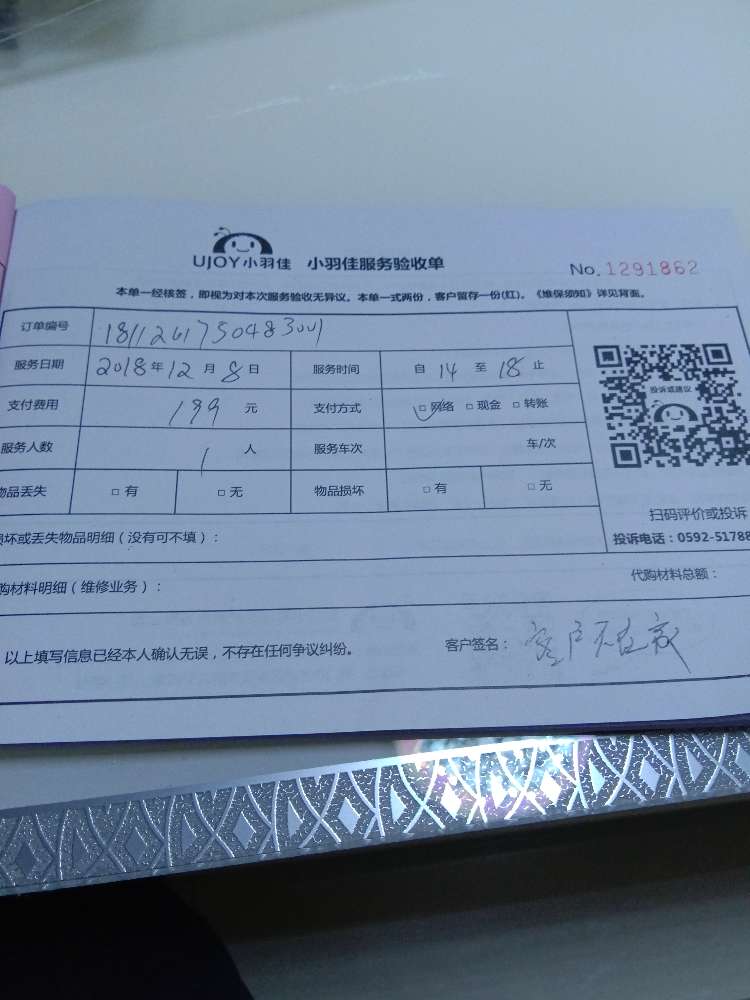 UJOY小羽佳 小羽佳服务验收单 No.1291862
本单一经核签，即视为对本次服务验收无异议。本单一式两份，客户留存一份(红)。《维保须知》详见背面。
订单编号 1811261750483001
服务日期 2018年12月8日 服务时间 自14至18止
支付费用 199元 支付方式 □网络 □现金 □转账
服务人数 1人 服务车次 车/次
物品丢失 □有 □无 物品损坏 □有 □无
投诉或建议
扫码评价或投诉
投诉电话：0592-51788
坏或丢失物品明细（没有可不填）：
购材料明细（维修业务）： 代购材料总额：
以上填写信息已经本人确认无误，不存在任何争议纠纷。 客户签名：客户不在家